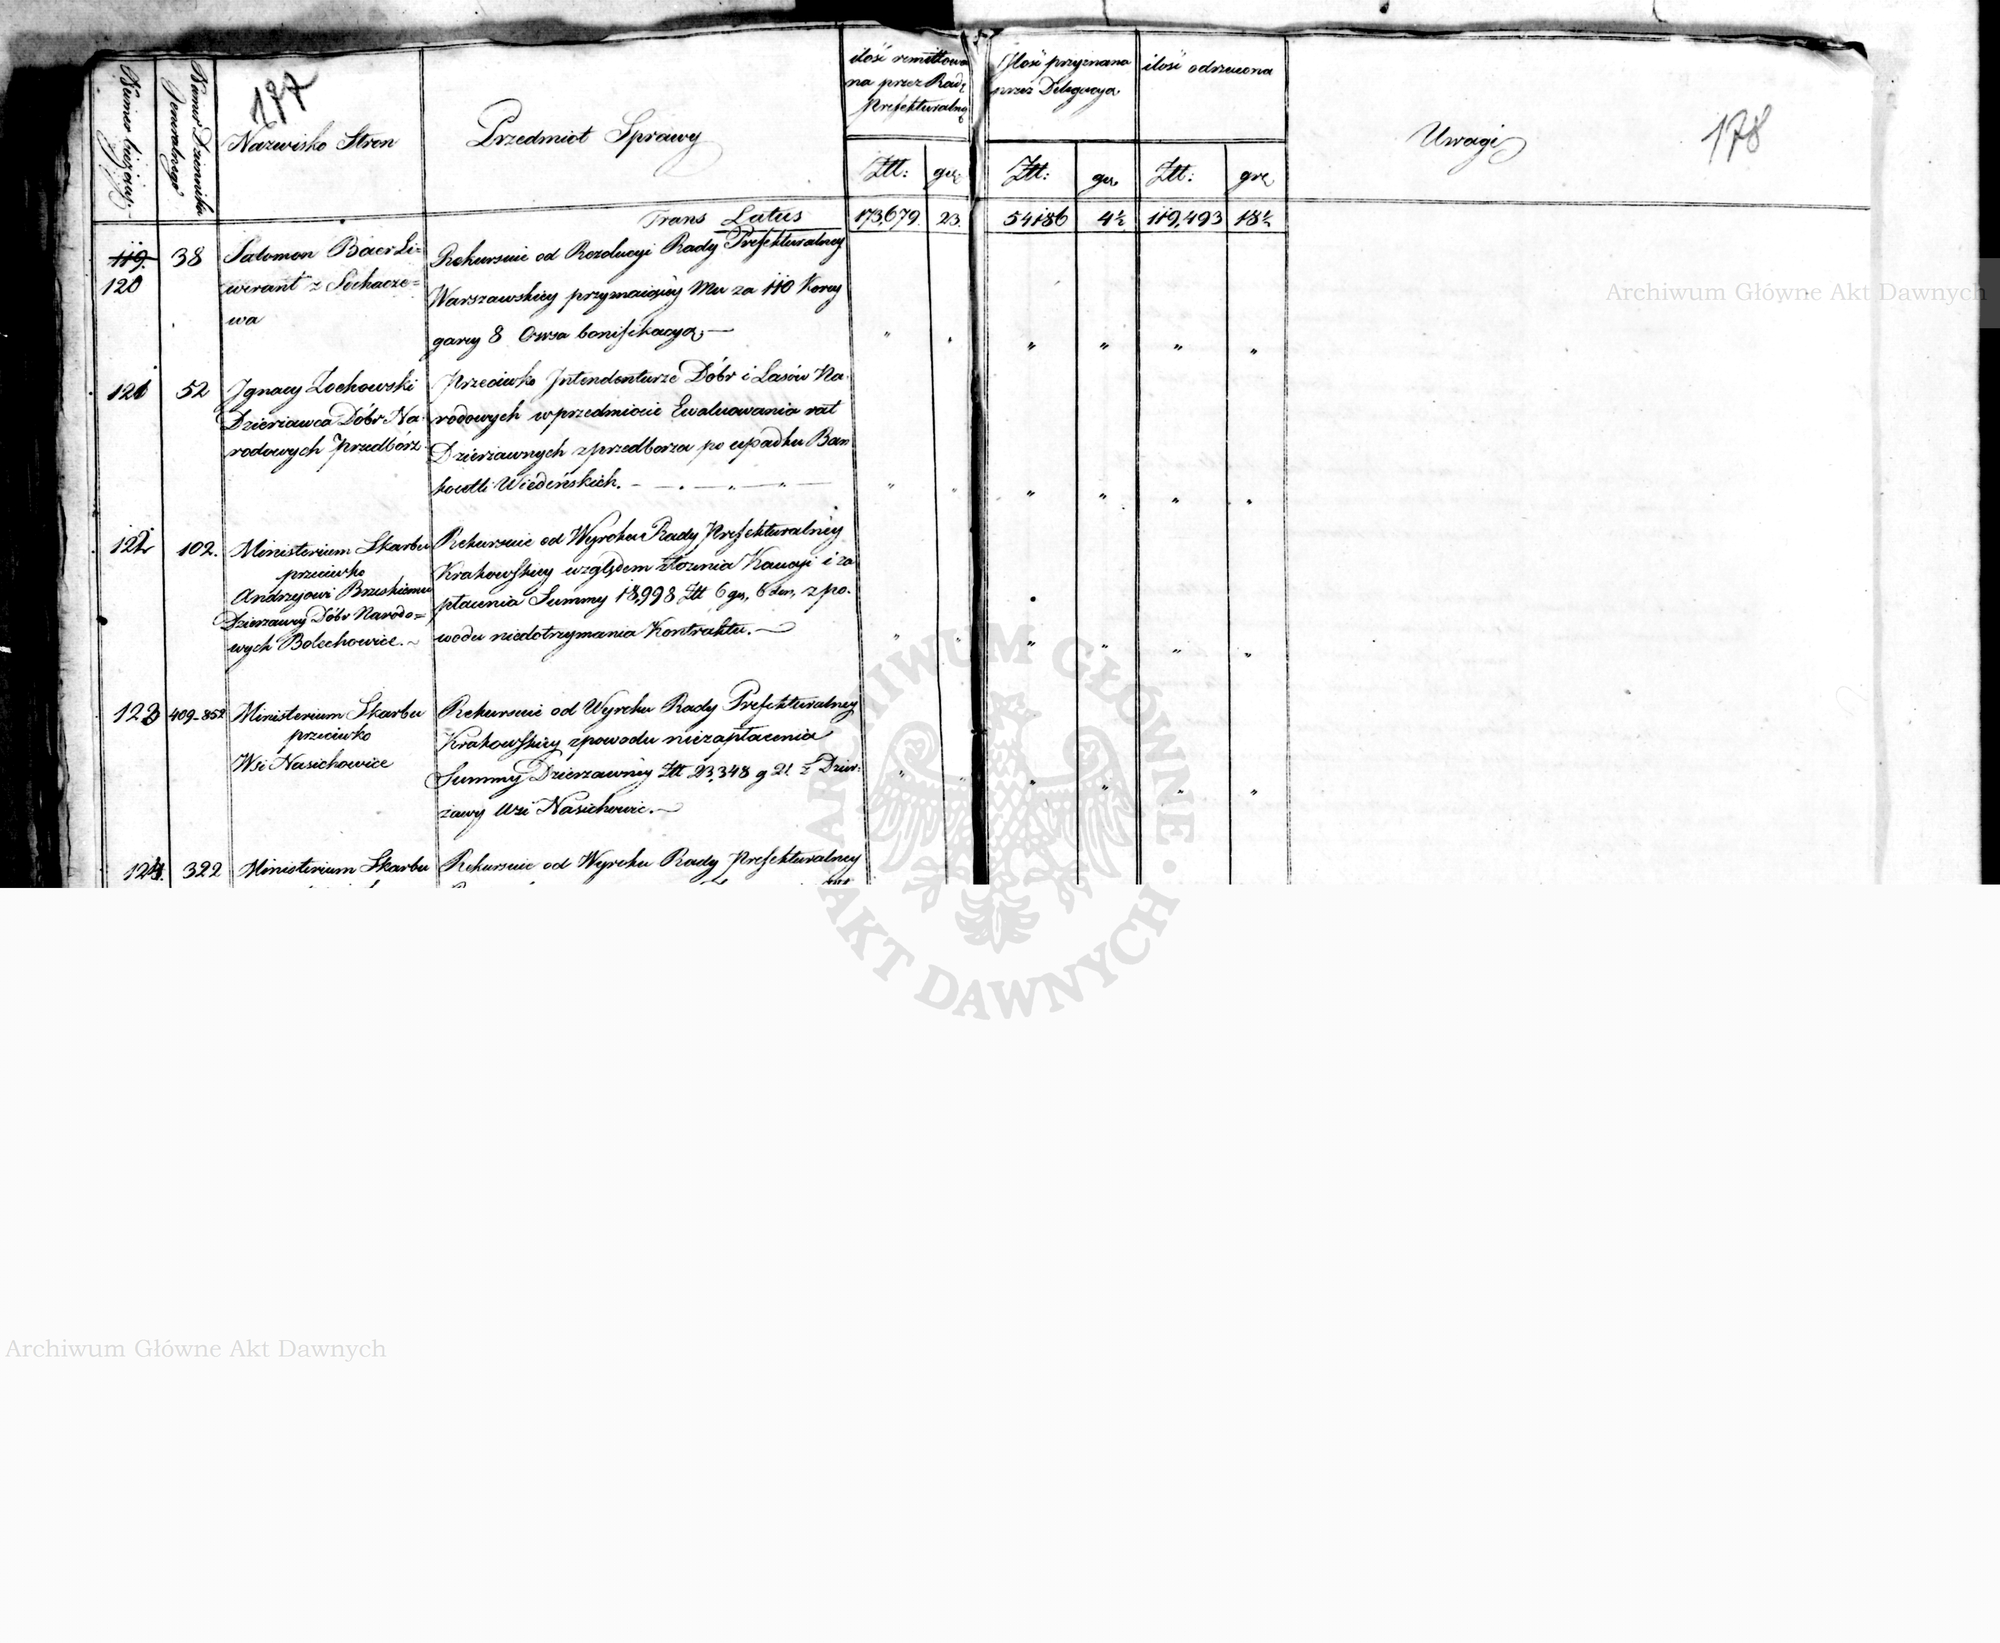 177
178
Numer bieżący.
Numer Dziennika Jeneralnego
Nazwisko Stron
Przedmiot Sprawy
ilość remittowa
na przez Radę
Prefekturalną
Ilość przyznana
przez Delegacyą
ilość odrzucona
Uwagi
Ztt: gr. Ztt: gr. Ztt: gr.
Trans Latus 173,679. 23. 54186 4½ 119,493 18½
119. 38 Salomon Baer Li=
120 werant z Sochacze=
wa
Rekursuie od Rezolucyi Rady Prefekturalney
Warszawskiey przyznaiącey Mu za 110 Korcy
garcy 8 Owsa bonifikacyą,—
121 52 Ignacy Zochowski
Dzierżawca Dóbr Na-
rodowych Przedbórz
Przeciwko Intendenturze Dóbr i Lasów Na-
rodowych w przedmiocie Ewaluowania rat
Dzierżawnych z Przedborza po upadku Ban
kocetli Wiedeńskich.
122 102. Ministerium Skarbu
przeciwko
Andrzejowi Brzeskiemu
Dzierzawcy Dóbr Narodo=
wych Bolechowice.
Rekursuie od Wyroku Rady Prefekturalney
Krakowskiey względem złożenia Kaucyi i za
płacenia Summy 18,998 Ztt 6 gr, 6 den, z po-
wodu niedotrzymania Kontraktu.—
123 409-852 Ministerium Skarbu
przeciwko
Wsi Nasichowice
Rekursuie od Wyroku Rady Prefekturalney
Krakowskiey z powodu niezapłacenia
Summy Dzierzawney Ztt 23,348 g 21 z Dzier-
żawy Wsi Nasichowic.—
124. 322 Ministerium Skarbu
Rekursuie od Wyroku Rady Prefekturalney
Archiwum Główne Akt Dawnych
ARCHIWUM GŁÓWNE AKT DAWNYCH
Archiwum Główne Akt Dawnych